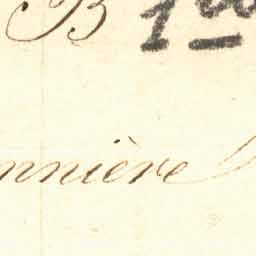 B 1
nnière